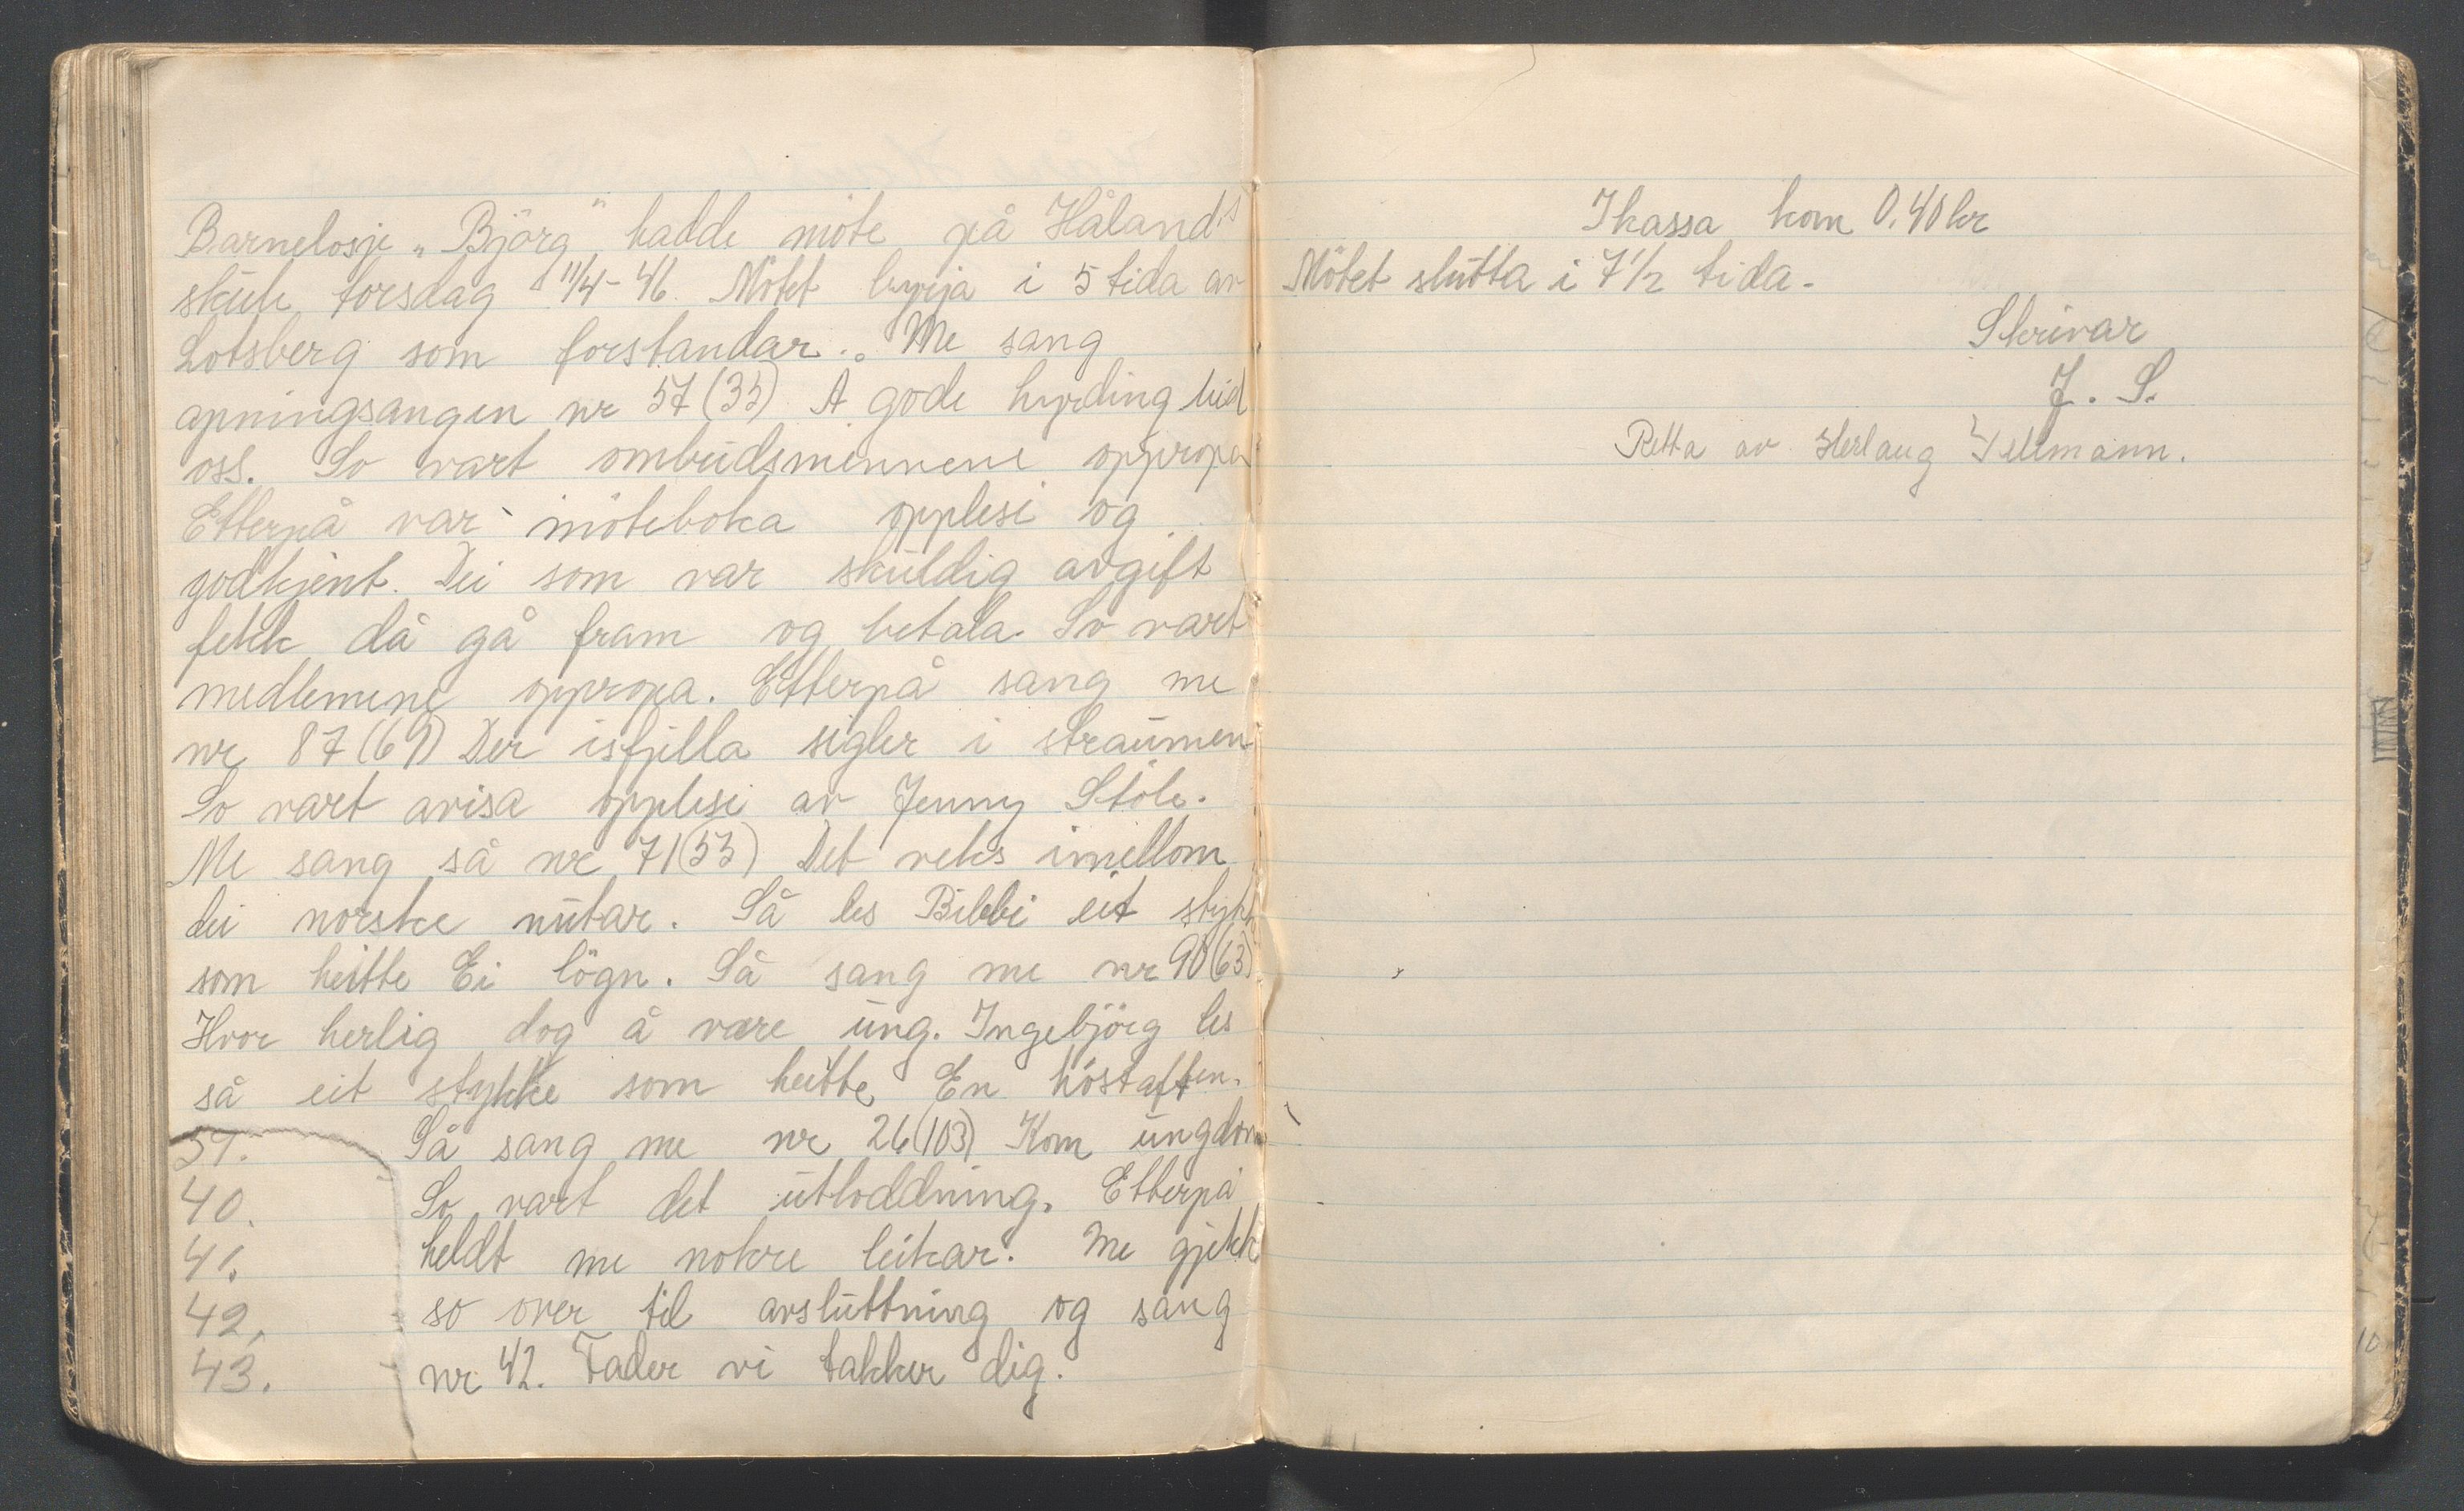 Barnelosje „Björg" hadde möte på Hålands
skule torsdag 11/4-46. Mötet byrja i 5 tida av
Lotsberg som forstandar. Me sang
apningsangen nr 57 (35) Å gode hyrding leid
oss. So vart ombudsmennene oppropa
Etterpå var möteboka opplesi og
godkjent. Dei som var skuldig avgift
fekk då gå fram og betala. So vart
medlemene oppropa. Etterpå sang me
nr 87 (69) Der isfjella sigler i straumen
So vart avisa opplesi av Jenny Stöle.
Me sang så nr 71 (53) Det veks imellom
dei norske nutar. Så les Bibbi eit stykke
som heitte Ei lögn. Så sang me nr 90 (63)
Hvor herlig dog å være ung. Ingebjörg les
så eit stykke som heitte En höstaften.
39. Så sang me nr 26 (103) Kom ungdom
40. So vart det utloddning. Etterpå
41. heldt me nokre leikar. Me gjekk
42, so over til avsluttning og sang
43. nr 42. Fader vi takker dig.
Ikassa kom 0.40 kr
Mötet slutta i 7 1/2 tida.
Skrivar
J. S.
Retta av Herlaug